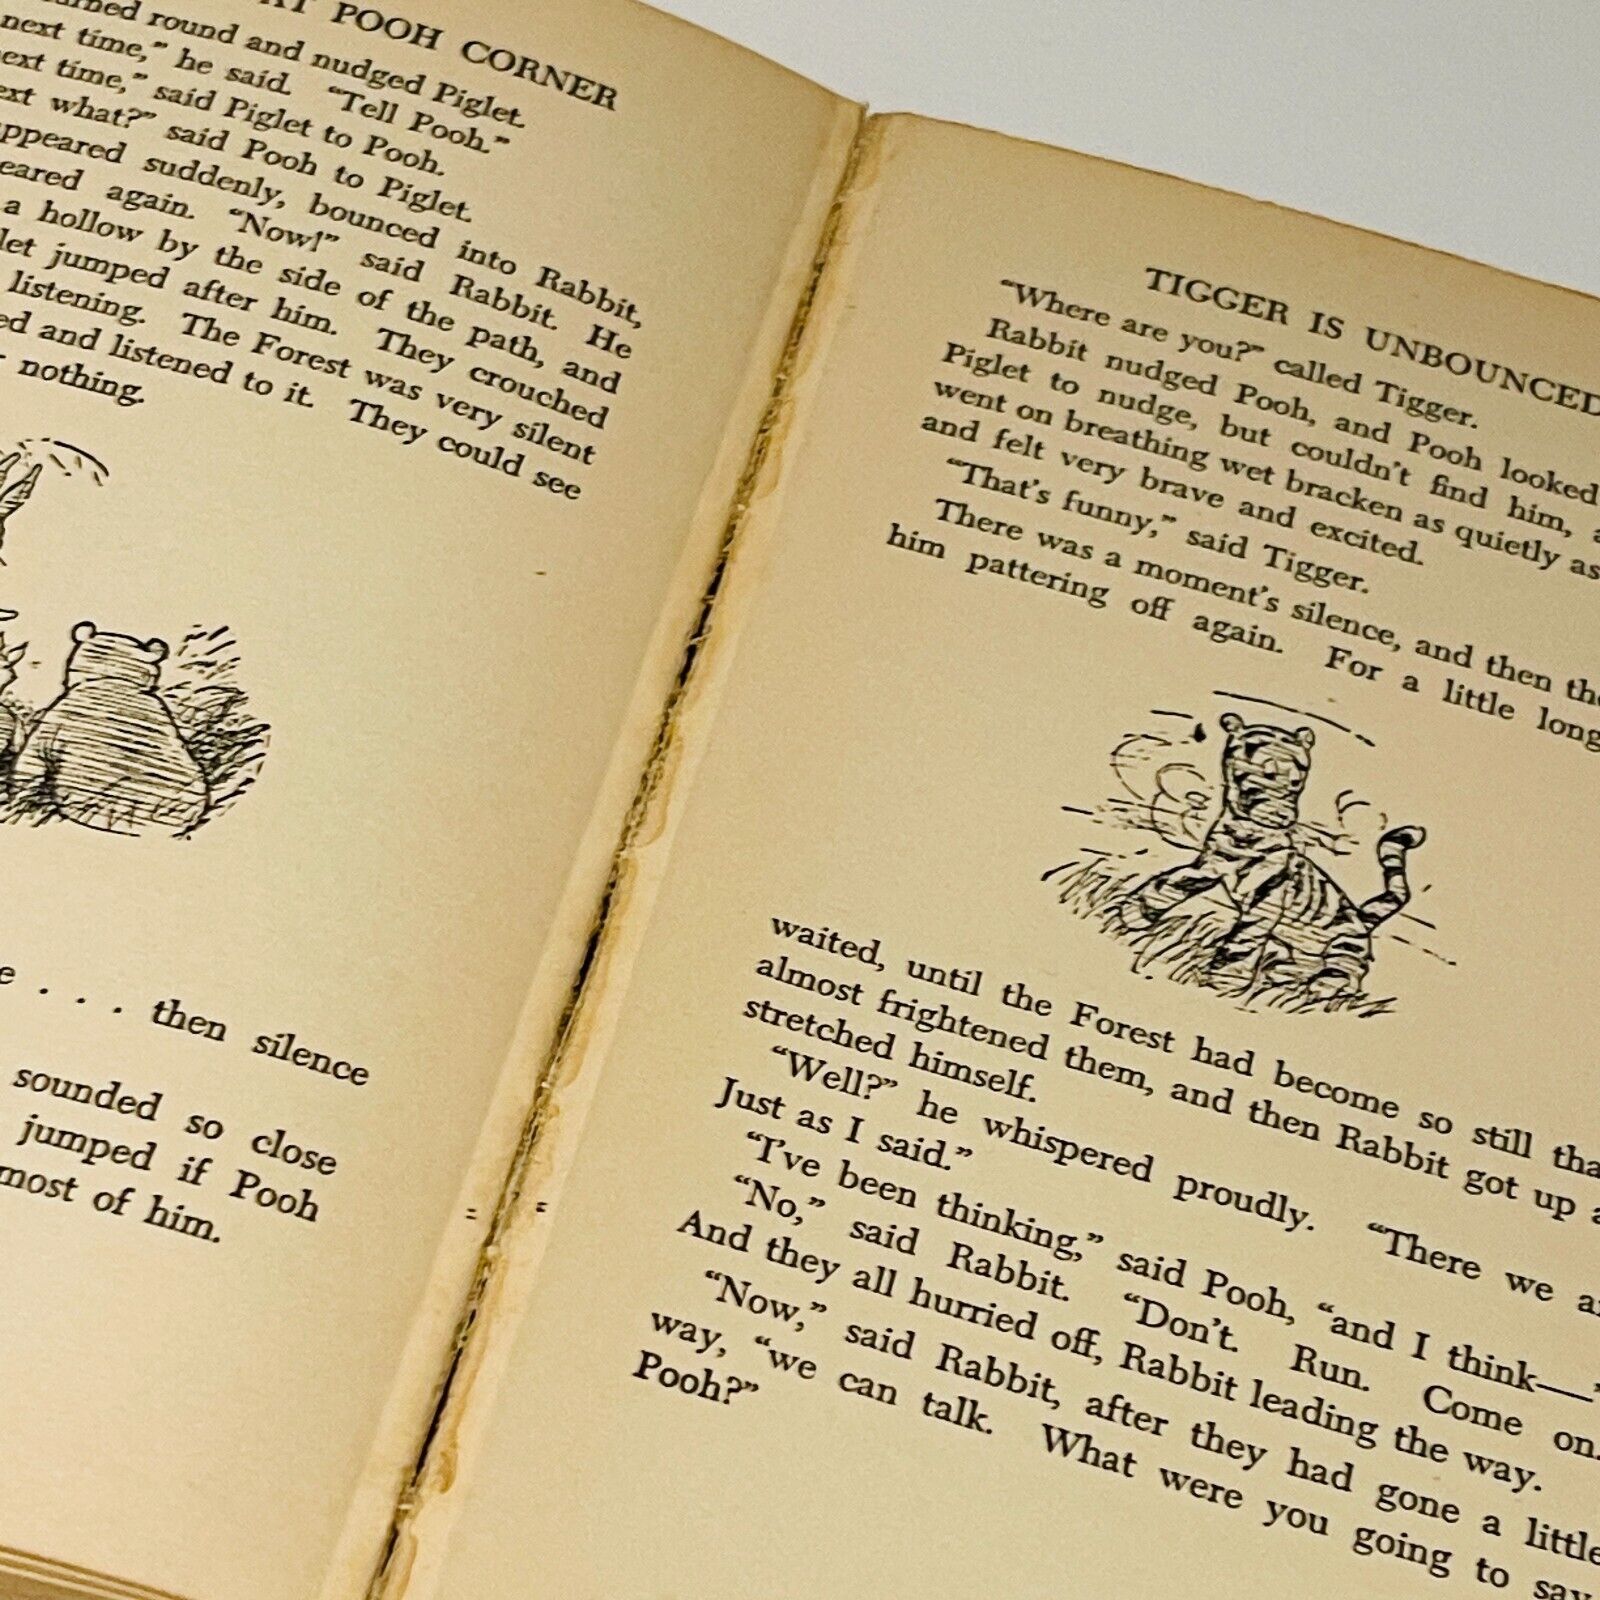 AT POOH CORNER
turned round and nudged Piglet.
next time,” he said. “Tell Pooh.”
next time,” said Piglet to Pooh.
what?” said Pooh to Piglet.
appeared suddenly, bounced into Rabbit,
again. “Now!” said Rabbit. He
a hollow by the side of the path, and
jumped after him. They crouched
listening. The Forest was very silent
and listened to it. They could see
nothing.
. . . then silence
sounded so close
jumped if Pooh
most of him.
TIGGER IS UNBOUNCED
“Where are you?” called Tigger.
Rabbit nudged Pooh, and Pooh looked
Piglet to nudge, but couldn’t find him,
went on breathing wet bracken as quietly as
and felt very brave and excited.
“That’s funny,” said Tigger.
There was a moment’s silence, and then
him pattering off again. For a little
waited, until the Forest had become so still
almost frightened them, and then Rabbit got up
stretched himself.
“Well?” he whispered proudly. “There we
Just as I said.”
“I’ve been thinking,” said Pooh, “and I think—”
“No,” said Rabbit. “Don’t. Run. Come on.
And they all hurried off, Rabbit leading the way.
“Now,” said Rabbit, after they had gone a little
way, “we can talk. What were you going to say
Pooh?”